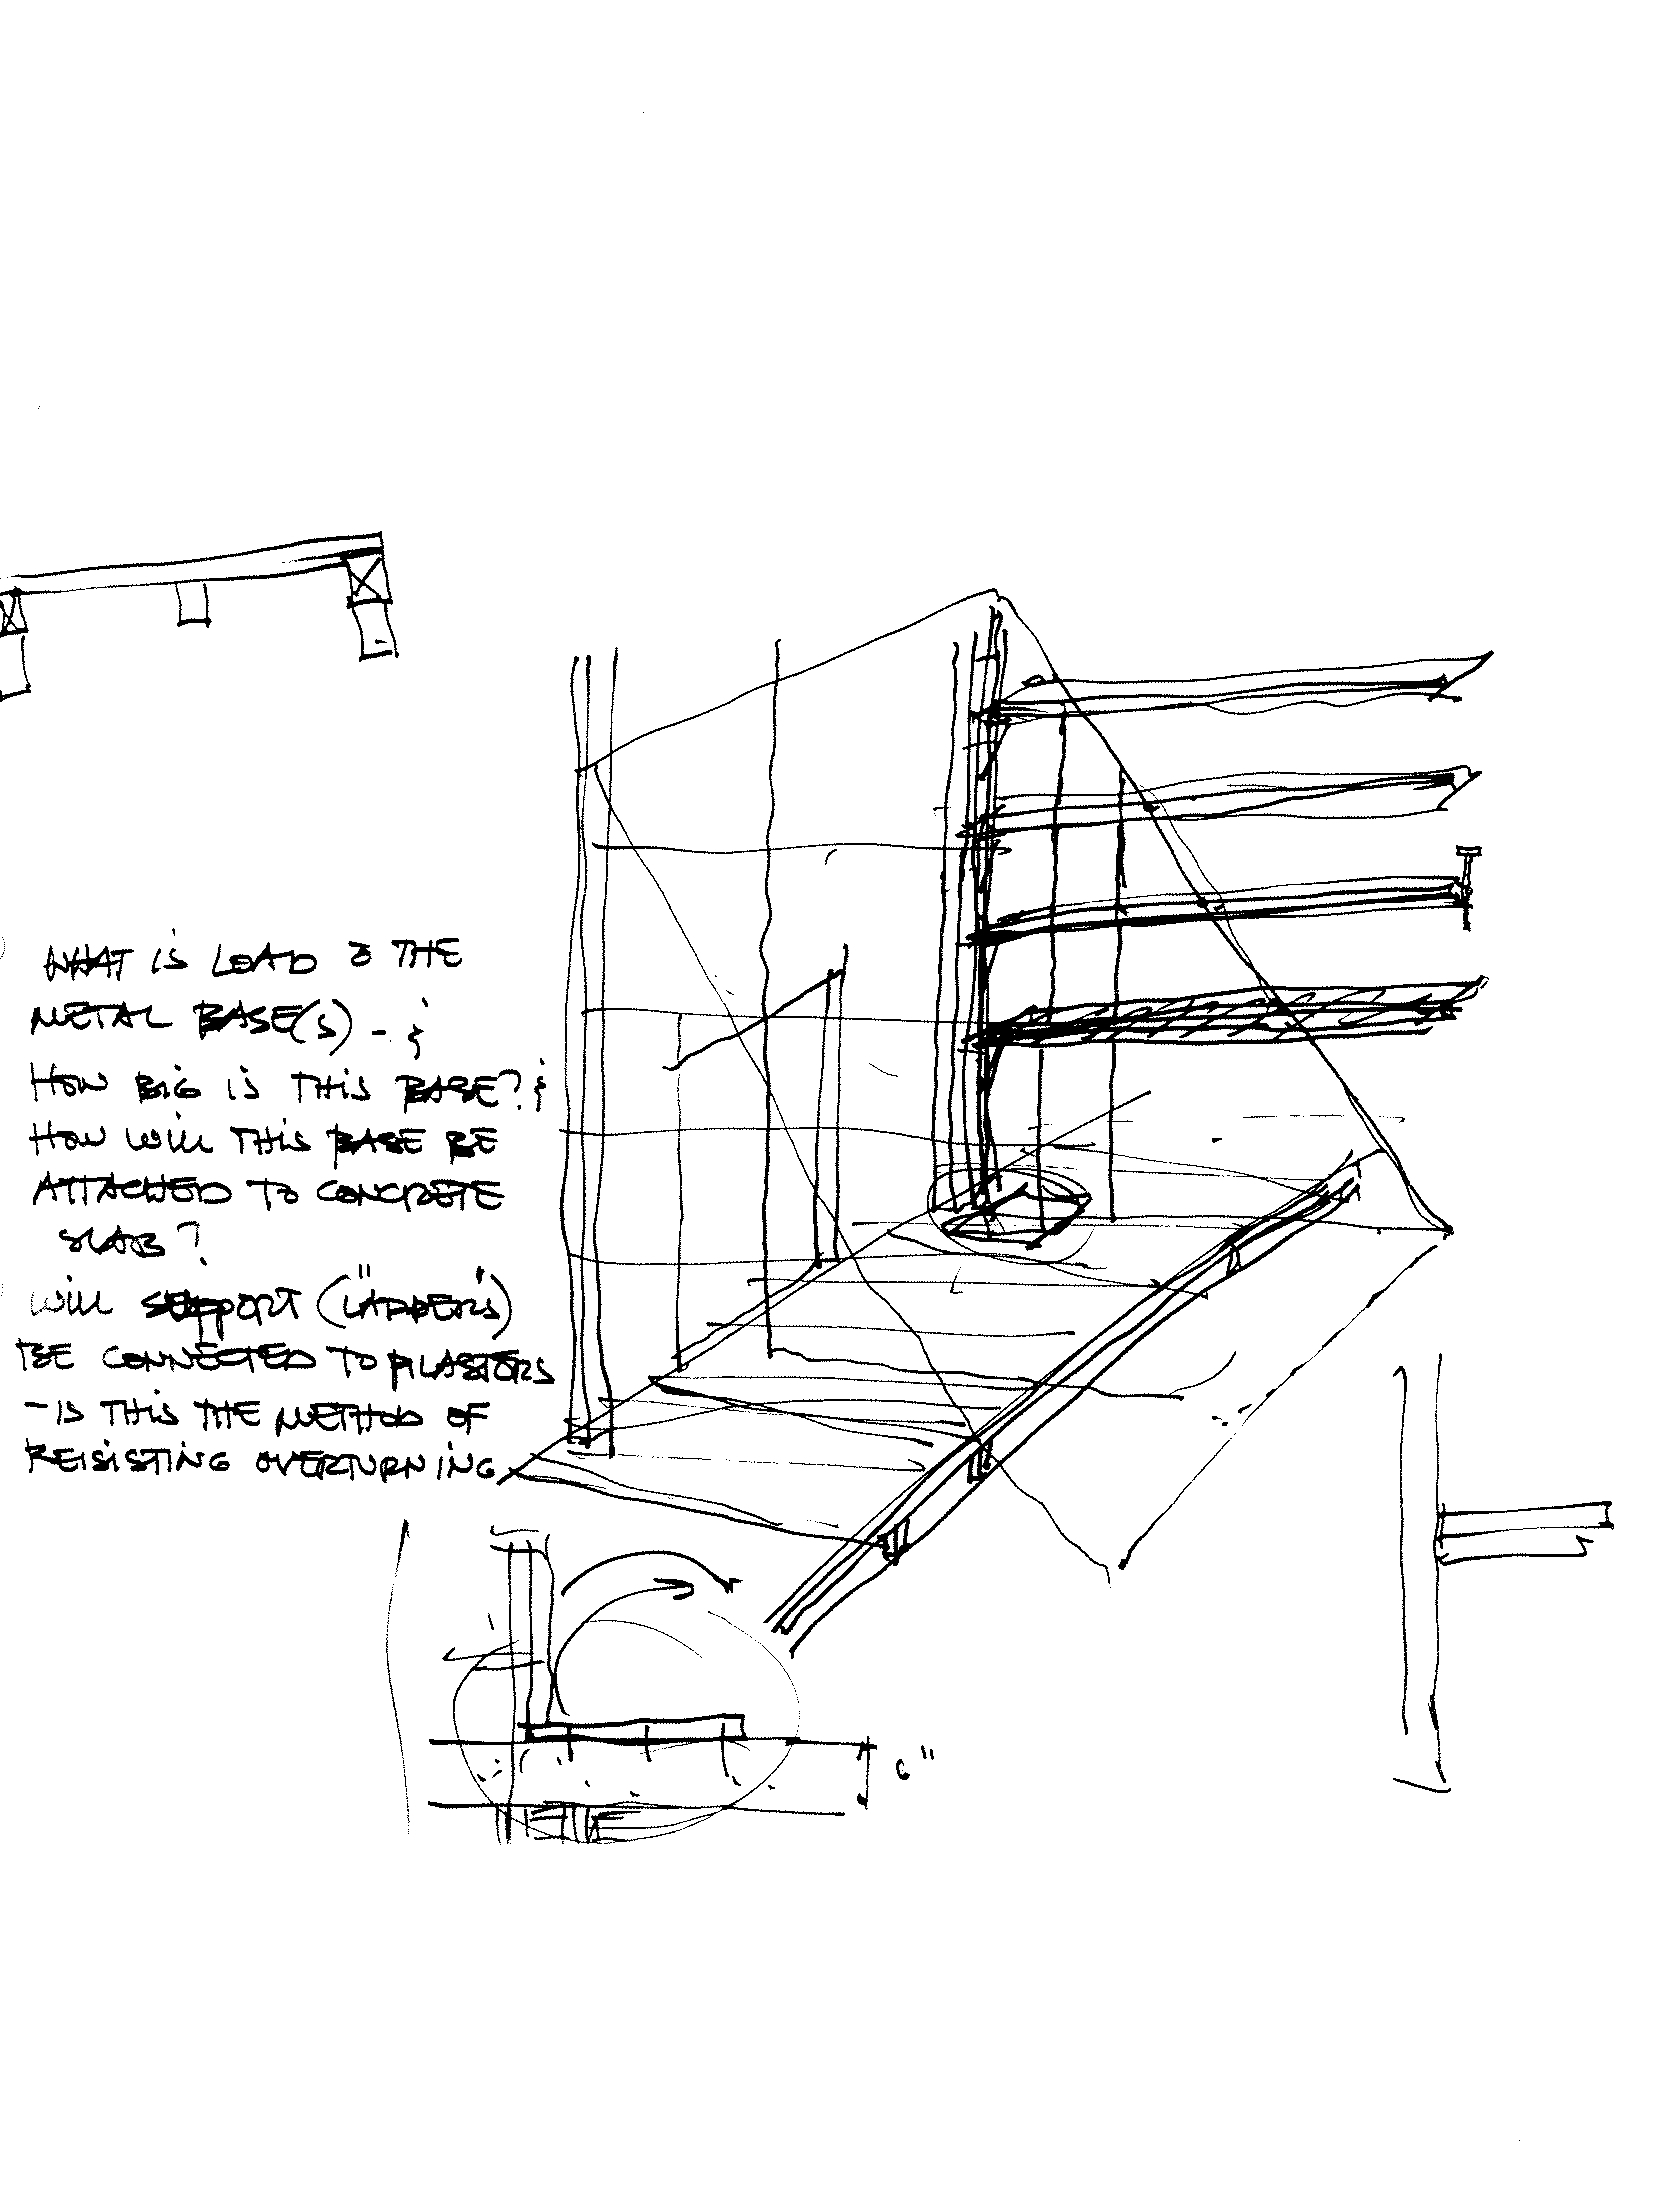 WHAT IS LOAD @ THE
METAL BASE(S) - &
HOW BIG IS THIS BASE? &
HOW WILL THIS BASE BE
ATTACHED TO CONCRETE
SLAB?
WILL SUPPORT ("LADDERS")
BE CONNECTED TO PILASTORS
- IS THIS THE METHOD OF
REISISTING OVERTURNING
6"